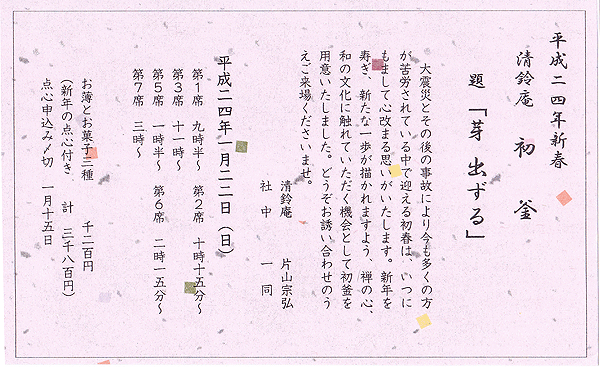 平成二四年新春
清鈴庵 初釜
題「芽出ずる」
大震災とその後の事故により今も多くの方
が苦労されている中で迎える初春は、いつに
もまして心改まる思いがいたします。新年を
寿ぎ、新たな一歩が描かれますよう、禅の心、
和の文化に触れていただく機会として初釜を
用意いたしました。どうぞお誘い合わせのう
えご来場くださいませ。
清鈴庵 片山宗弘
社中一同
平成二四年一月二二日（日）
第1席 九時半～ 第2席 十時十五分～
第3席 十一時～
第5席 一時半～ 第6席 二時一五分～
第7席 三時～
お薄とお菓子三種 千二百円
（新年の点心付き 計 三千八百円）
点心申込み〆切 一月十五日